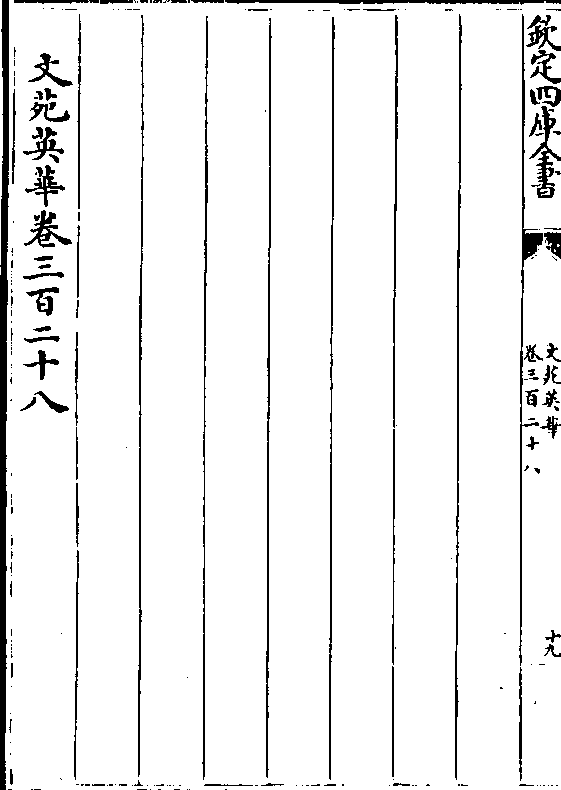 欽定四庫全書
文苑英華
卷三百二十八
十九
文苑英華卷三百二十八